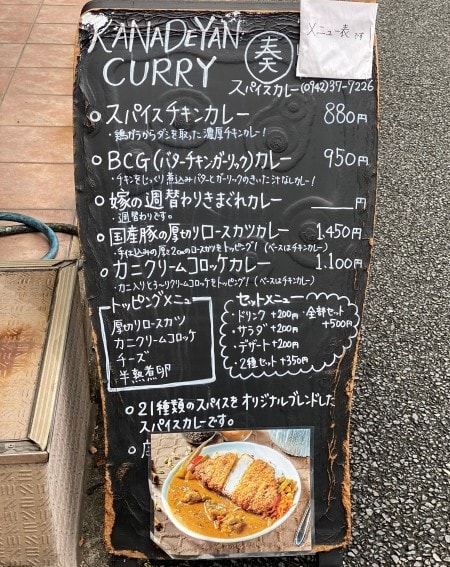 KANADEYAN
CURRY
奏
スパイスカレー(0942)37-9226
メニュー表です
スパイスチキンカレー 880円
・鶏ガラからダシを取った濃厚チキンカレー!
BCG(バターチキンガーリック)カレー 950円
・チキンをじっくり煮込みバターとガーリックのきいた汁なしカレー!
嫁の週替わりきまぐれカレー ――円
・週替わりです。
国産豚の厚切りロースカツカレー 1.450円
・手仕込みの厚さ2cmのロースカツをトッピング!(ベースはチキンカレー)
カニクリームコロッケカレー 1.100円
・カニ入りとろ〜りクリームコロッケをトッピング!(ベースはチキンカレー)
トッピングメニュー
厚切りロースカツ
カニクリームコロッケ
チーズ
半熟煮卵
セットメニュー
・ドリンク +200円
・サラダ +200円
・デザート +200円
・2種セット +350円
・全部セット
+500円
21種類のスパイスをオリジナルブレンドした
スパイスカレーです。